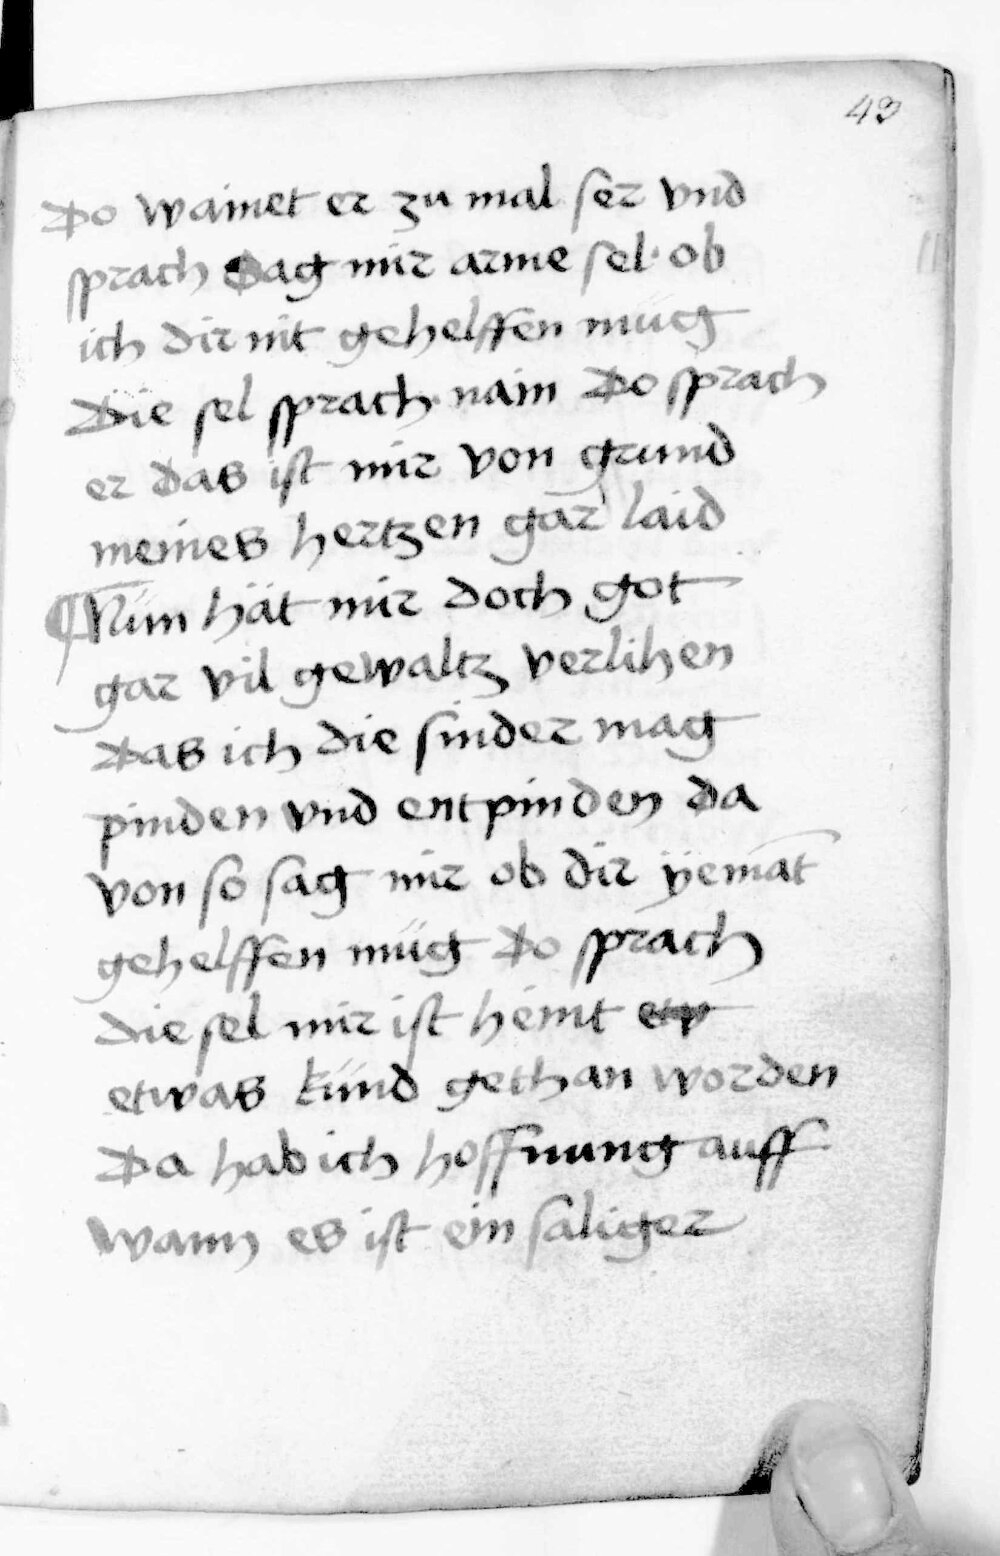 43
Do wainet er zu mal ser vnd
sprach Sag mir arme sel · ob
ich dir nit gehelffen müg
Die sel sprach nain Do sprach
er das ist mir von grund
meines hertzen gar laid
¶ Nün hät mir doch got
gar vil gewaltz verlihen
Das ich die sinder mag
pinden vnd entpinden da
von so sag mir ob dir ÿemāt
gehelffen müg Do sprach
die sel mir ist heint etw
etwas künd gethan worden
Da hab ich hoffnung auff
wann es ist ein saliger